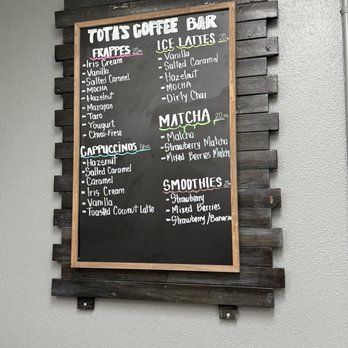 TOTA'S COFFEE BAR
FRAPPES
- Iris Cream
- Vanilla
- Salted Caramel
- MOCHA
- Hazelnut
- Mazapan
- Taro
- Yougurt
- Chai-Fresa
CAPPUCCINOS
- Hazelnut
- Salted Caramel
- Caramel
- Iris Cream
- Vanilla
- Toasted Coconut Latte
ICE LATTES
- Vanilla
- Salted Caramel
- Hazelnut
- MOCHA
- Dirty Chai
MATCHA 20 oz
- Matcha
- Strawberry Matcha
- Mixed Berries Matcha
SMOOTHIES
- Strawberry
- Mixed Berries
- Strawberry/Banana